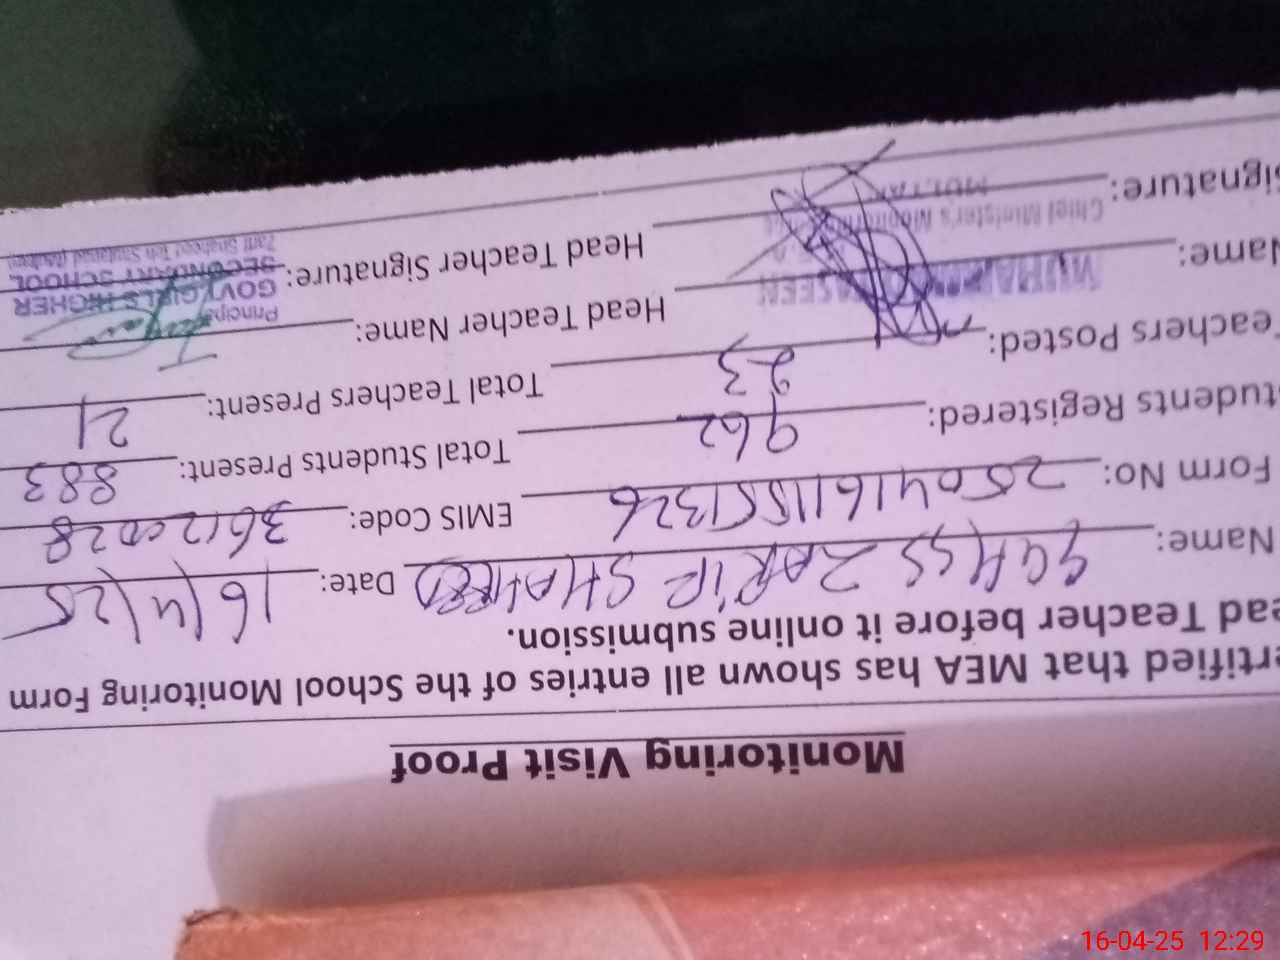 Monitoring Visit Proof
ertified that MEA has shown all entries of the School Monitoring Form
ead Teacher before it online submission.
Name: GGHSS ZARIF SHAHEED Date: 16/4/25
Form No: EMIS Code:
tudents Registered: 962 Total Students Present: 883
eachers Posted: 23 Total Teachers Present: 21
Name: Head Teacher Name:
ignature: Head Teacher Signature:
Chief Minister's Monitoring
MULTAN
Principal
GOVT GIRLS HIGHER
SECONDARY SCHOOL
16-04-25 12:29